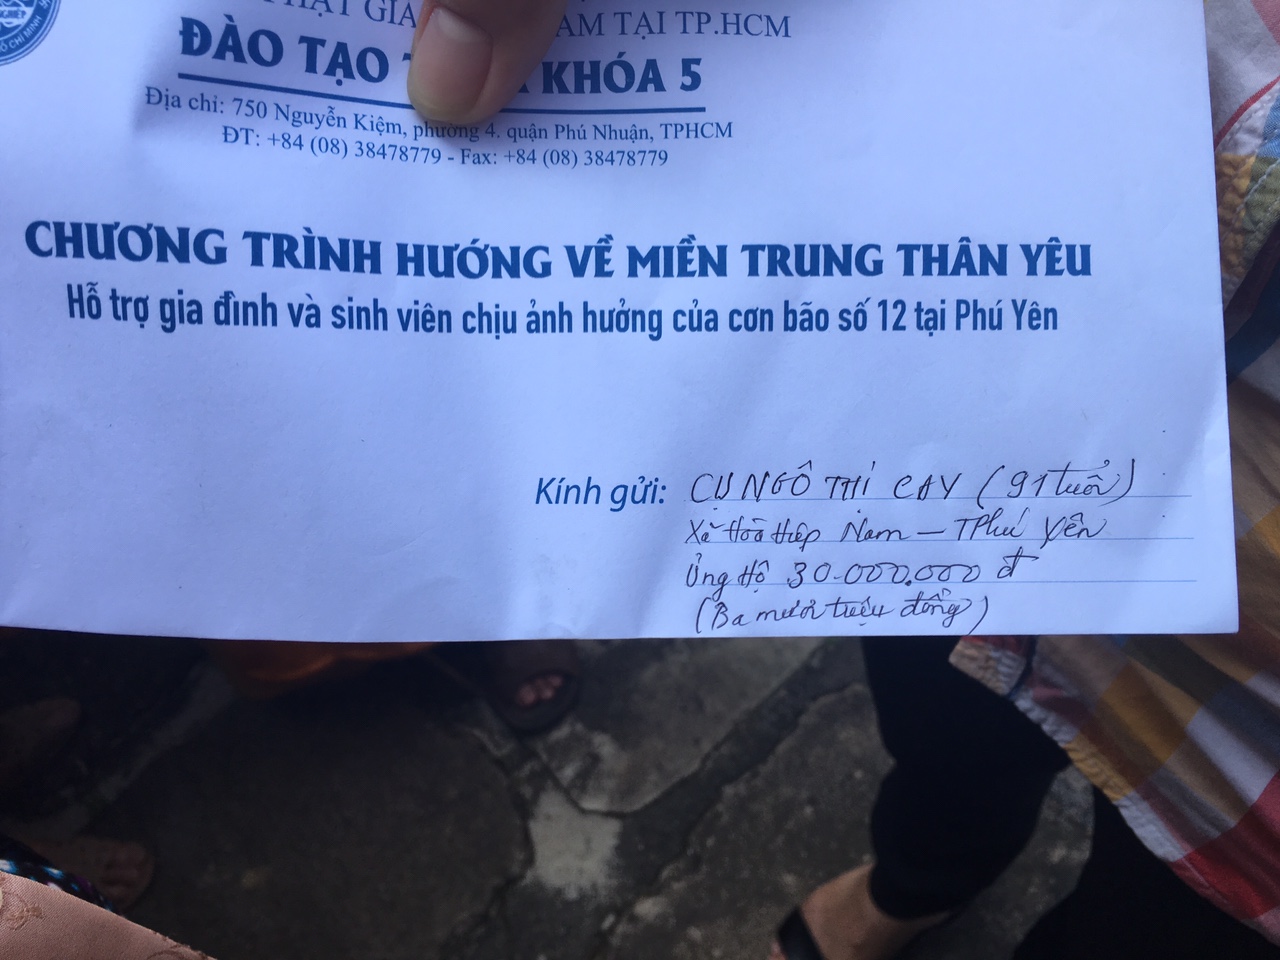 GIA
AM TẠI TP.HCM
ĐÀO TẠO KHÓA 5
Địa chỉ: 750 Nguyễn Kiệm, phường 4. quận Phú Nhuận, TPHCM
ĐT: +84 (08) 38478779 - Fax: +84 (08) 38478779
CHƯƠNG TRÌNH HƯỚNG VỀ MIỀN TRUNG THÂN YÊU
Hỗ trợ gia đình và sinh viên chịu ảnh hưởng của cơn bão số 12 tại Phú Yên
Kính gửi: CỤ NGÔ THỊ CAY (91 tuổi)
Xã Hòa Hiệp Nam - TPhú Yên
Ủng Hộ 30.000.000 đ
(Ba mươi triệu đồng)